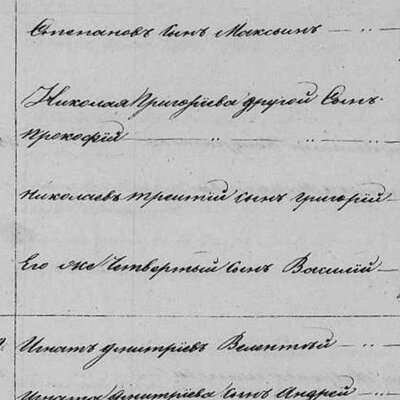 Степановъ Сынъ Максимъ
Николая Григорiева другой Сынъ
Прокофiй
Николаевъ третiй сынъ Григорiй
Его же Четвертый сынъ Василiй
Игнатъ Дмитрiевъ
Игната Дмитрiева сынъ Андрей